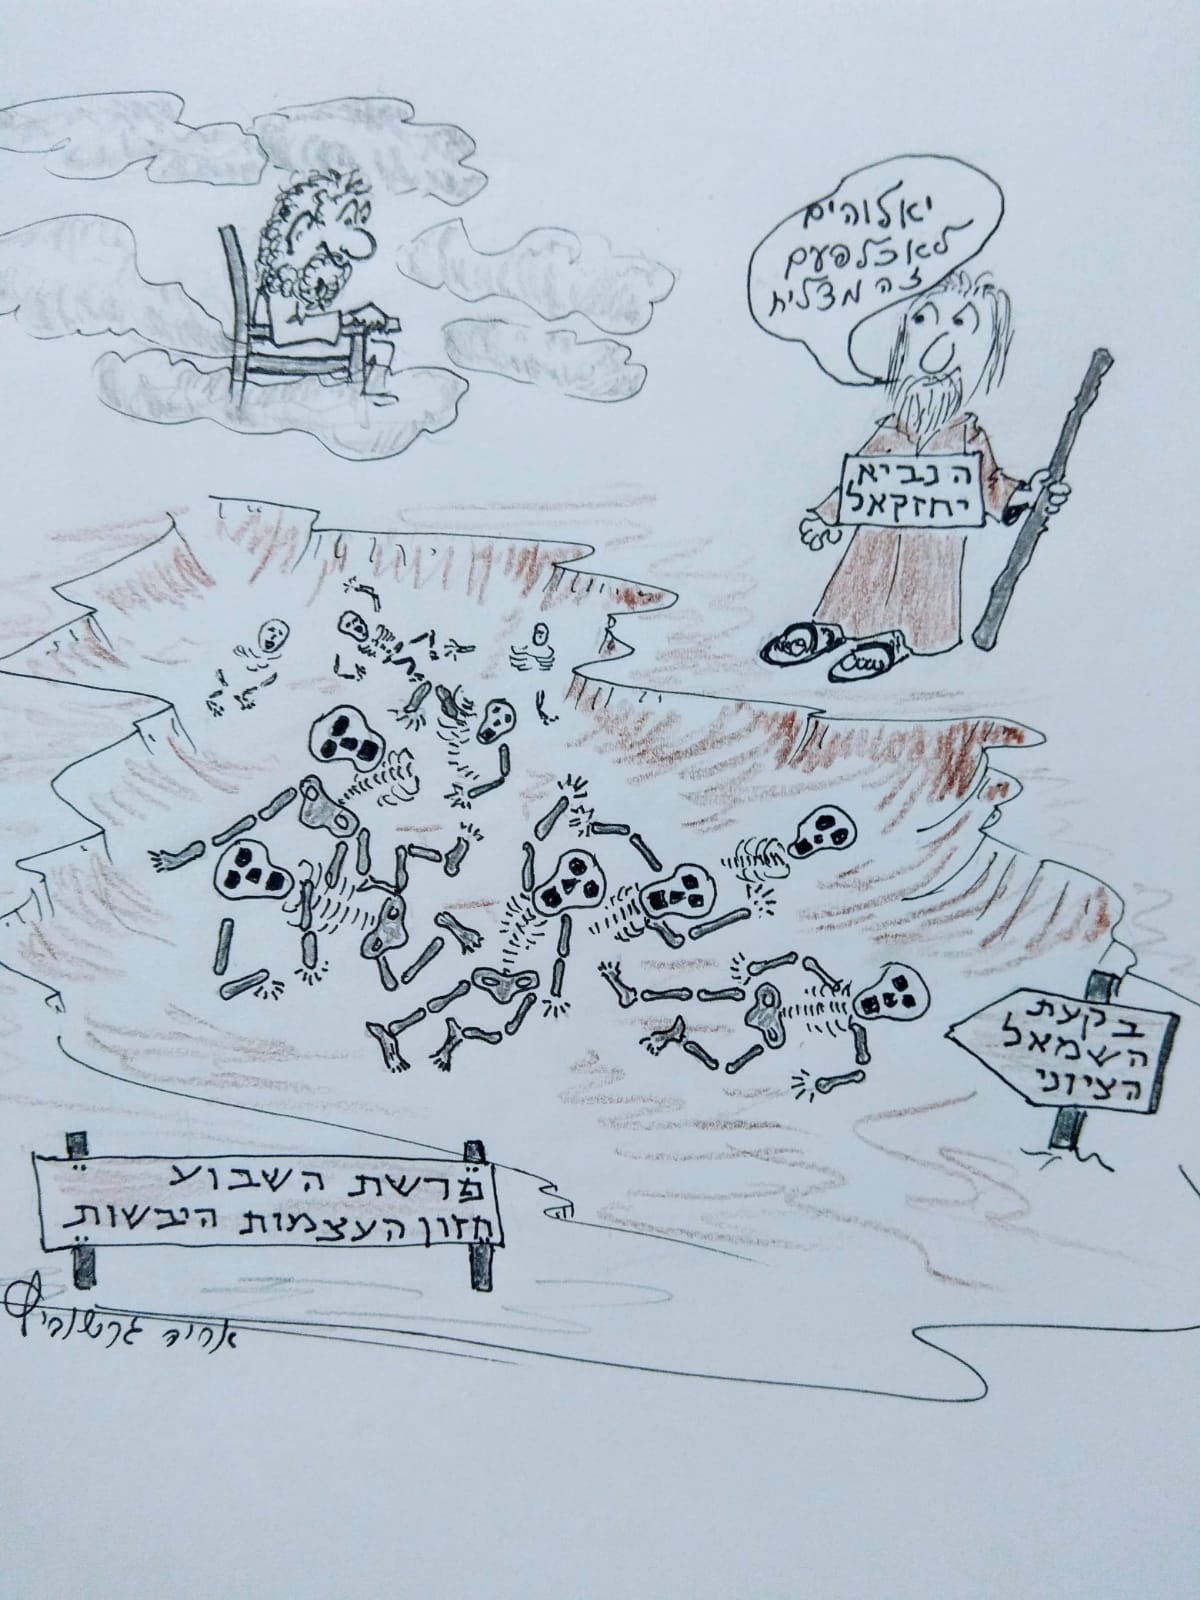 יאלוהים
לא כל פעם
זה מצליח
הנביא
יחזקאל
בקעת
השמאל
הציוני
פרשת השבוע
חזון העצמות היבשות
אריה